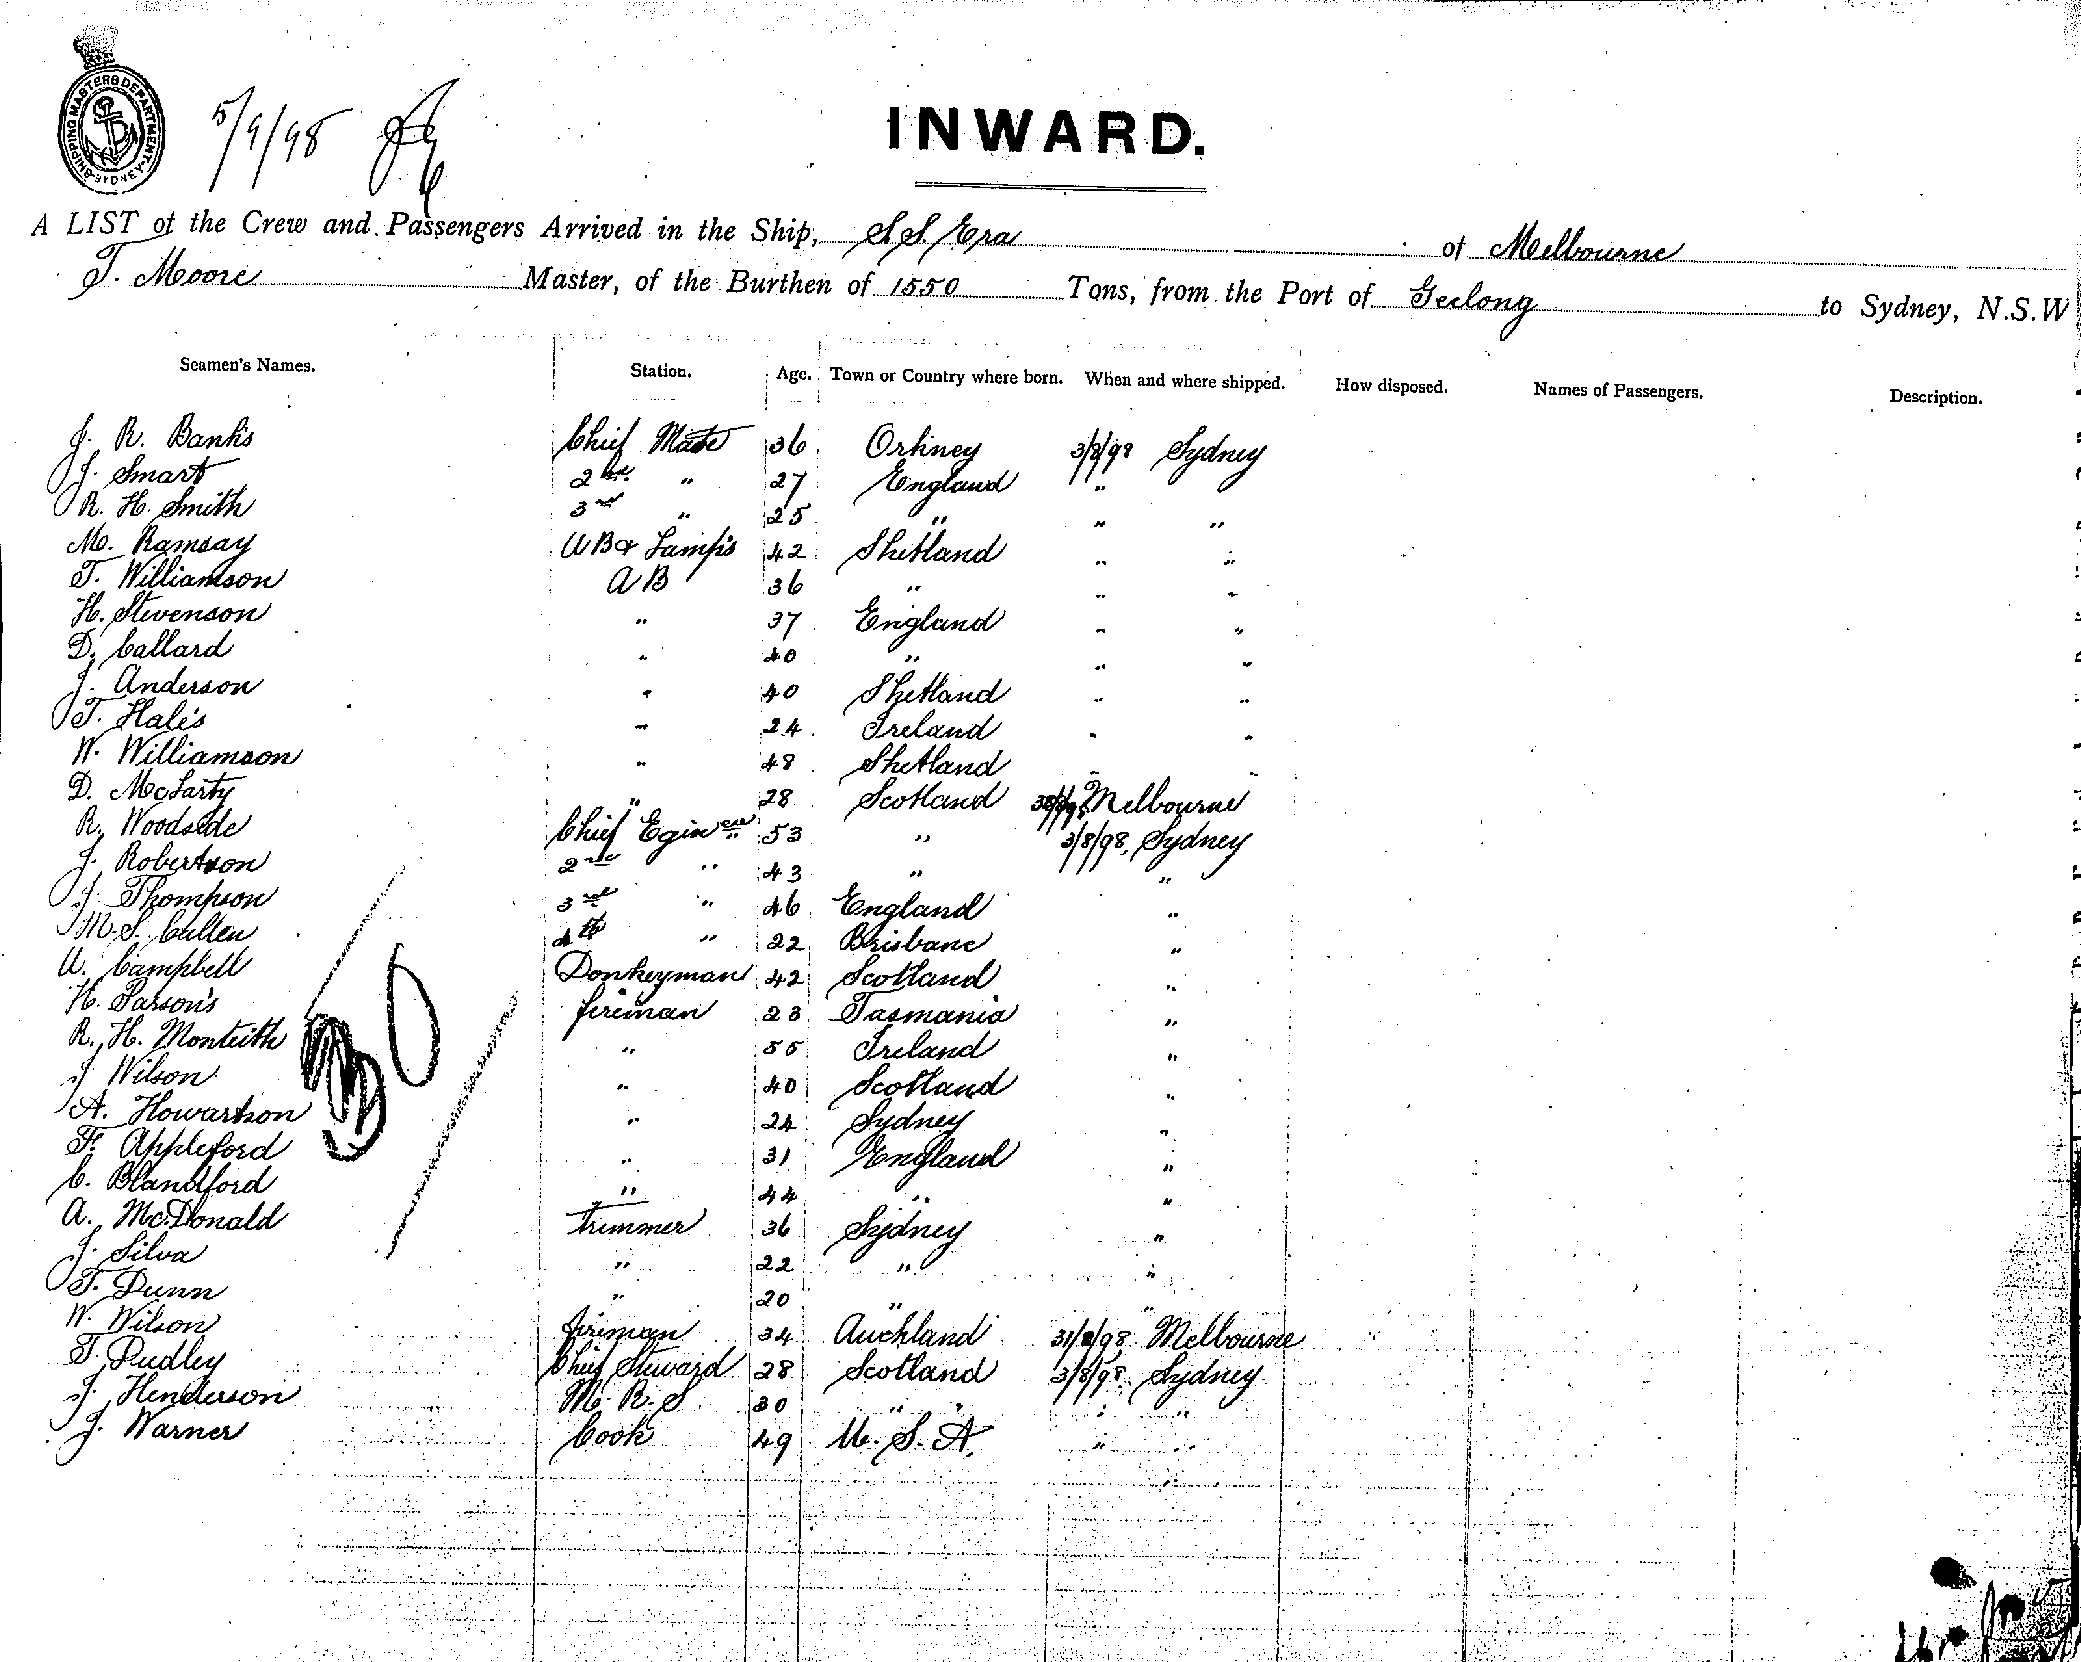 SHIPPING MASTERS DEPARTMENT SYDNEY
5/9/98
INWARD.
A LIST of the Crew and Passengers Arrived in the Ship, S.S. Era of Melbourne
T. Moore Master, of the Burthen of 1550 Tons, from the Port of Geelong to Sydney, N.S.W
Seamen's Names. Station. Age. Town or Country where born. When and where shipped. How disposed. Names of Passengers. Description.
J. R. Banks Chief Mate 36 Orkney 3/8/98 Sydney
J. Smart 2nd " 27 England "
R. H. Smith 3rd " 25 " " "
M. Ramsay AB & Lamps 42 Shetland " "
T. Williamson AB 36 " " "
H. Stevenson " 37 England " "
D. Callard " 40 " " "
J. Anderson " 40 Shetland " "
T. Hales " 24 Ireland " "
W. Williamson " 48 Shetland " "
D. McLarty " 28 Scotland Melbourne
R. Woodside Chief Egineer 53 " 3/8/98, Sydney
J. Robertson 2nd " 43 " "
J. Thompson 3rd " 46 England "
M. S. Cullen 4th " 22 Brisbane "
A. Campbell Donkeyman 42 Scotland "
H. Parson's fireman 23 Tasmania "
R. H. Monteith " 55 Ireland "
J. Wilson " 40 Scotland "
A. Howartson " 24 Sydney "
F. Appleford " 31 England "
C. Blandford " 44 " "
A. McDonald Trimmer 36 Sydney "
J. Silva " 22 " "
T. Dunn " 20 " "
W. Wilson fireman 34 Auckland 31/8/98 Melbourne
T. Pudley Chief Steward 28 Scotland 3/8/98 Sydney
J. Henderson M. R. S. 30 " " " "
J. Warner Cook 49 U. S. A. " "